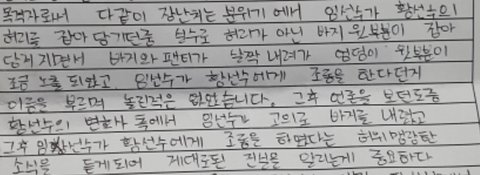 목격자로서 다같이 장난치는 분위기 에서 임선수가 황선수의
허리를 잡아 당기던중 실수로 허리가 아닌 바지 윗부분이 잡아
당겨 지면서 바지와 팬티가 살짝 내려가 엉덩이 윗부분이
조금 노출 되었고, 임선수가 황선수에게 조롱을 한다던지
이름을 부르며 놀린적은 없었습니다. 그후 언론을 보던도중
황선수의 변호사 쪽에서 임선수가 고의로 바지를 내렸고
그후 임선수가 황선수에게 조롱을 하였다는 허위맹랑한
소식을 듣게되어 제대로된 진실을 알리는게 중요하다